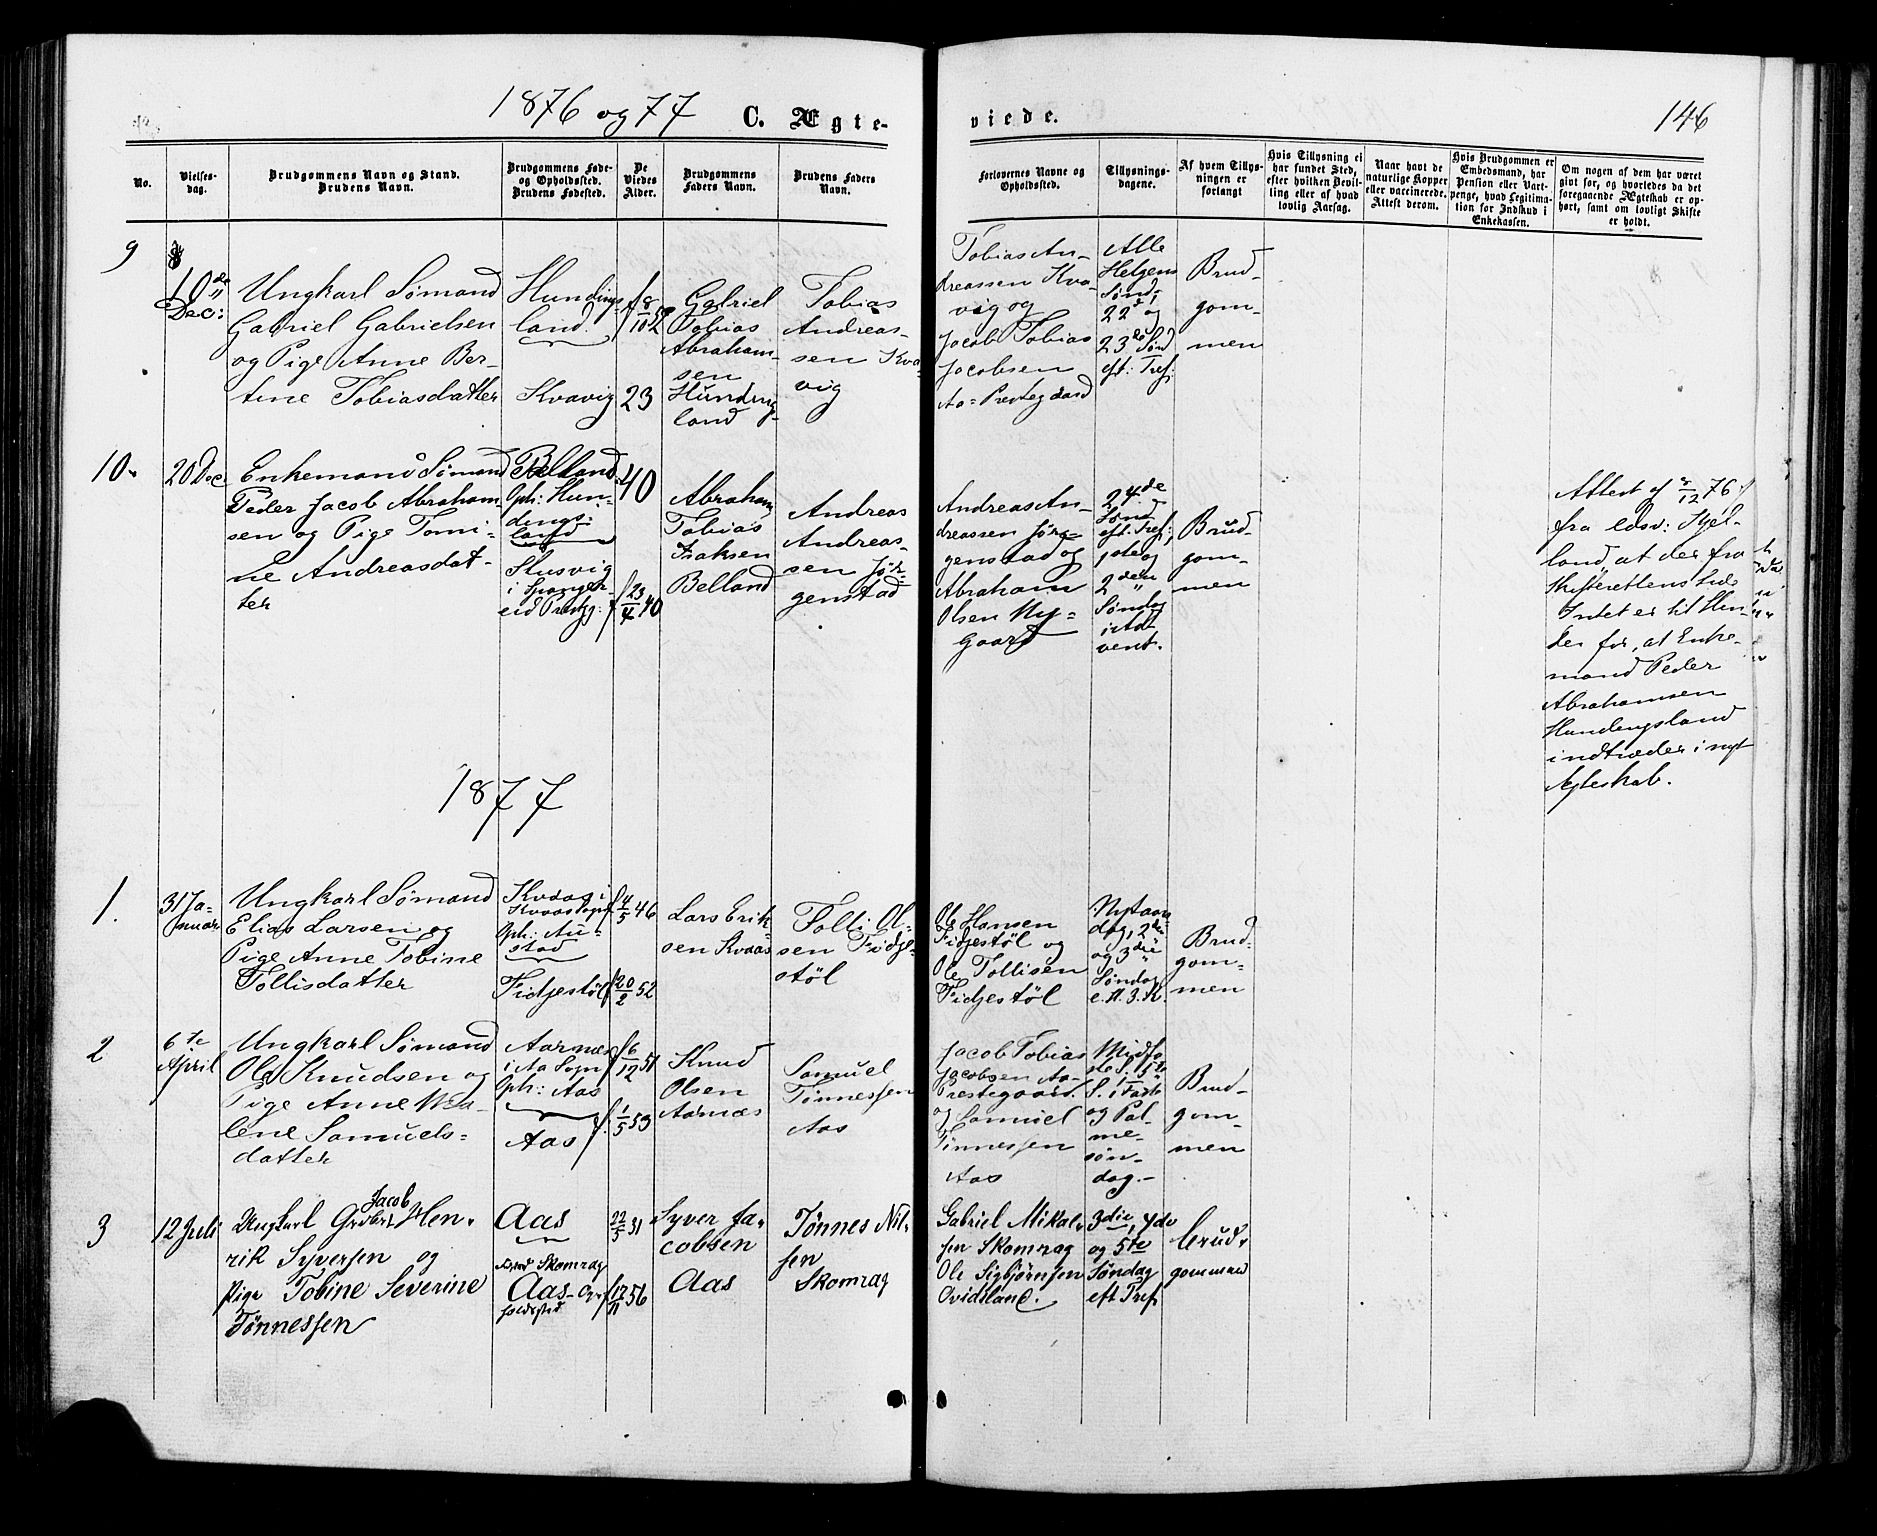 1876 og 77
C. Ægte-
viede.
146
No.
Vielses-
dag.
Brudgommens Navn og Stand.
Brudens Navn.
Brudgommens Føde-
og Opholdssted.
Brudens Fødested.
De
Viedes
Alder.
Brudgommens
Faders Navn.
Brudens Faders
Navn.
Forlovernes Navne og
Opholdssted.
Tillysnings-
dagene.
Af hvem Tillys-
ningen er
forlangt
Hvis Tillysning ei
har fundet Sted,
efter hvilken Bevil-
ling eller af hvad
lovlig Aarsag.
Naar havt de
naturlige Kopper
eller vaccinerede.
Attest derom.
Hvis Brudgommen er
Embedsmand, har
Pension eller Vart-
penge, hvad Legitima-
tion for Indskud i
Enkekassen.
Om nogen af dem har været
gift før, og hvorledes da det
foregaaende Ægteskab er op-
hørt, samt om lovligt Skifte
er holdt.
9
10de
Dec:
Ungkarl Sømand
Gabriel Gabrielsen
og Pige Anne Ber-
tine Tobiasdatter
Hundings
land.
Kvavig
f 8/10 52
23
Gabriel
Tobias
Abraham-
sen
Hundings-
land
Tobias
Andreas-
sen Kva-
vig
Tobias An-
dreassen Kva-
vig og
Jacob Tobias
Jacobsen
Aa-Prestegaard
Alle
Helgens
Sønd,
22de og
23de Sønd
eft: Tref:
Brud-
gom-
men
10.
20 Dec
Enkemand Sømand
Peder Jacob Abraham-
sen og Pige Tomi-
ne Andreasdat-
ter
Belland
Oph: Hun-
dings-
land
Stusvig
i Spanger-
eid Prestg:
40
f 23/4 40
Abraham
Tobias
Isaksen
Belland
Andreas
Andreas-
sen Jør-
genstad
Andreas An-
dreassen Jør-
genstad og
Abraham
Olsen Ny-
gaard
24de
Sønd
eft: Tref:,
1ste og
2den
Søndag
i Ad-
vent.
Brud-
gom-
men
Attest af 8/12 76
fra Ldsv: Kjel-
land, at der fra
Skifterettens Side
Intet er til Hin-
der for, at Enke-
mand Peder
Abrahamsen
Hundingsland
indtræder i nyt
Ægteskab.
1877
1.
31 Ja-
nuar
Ungkarl Sømand
Elias Larsen og
Pige Anne Tobine
Tollisdatter
Kvaas i
Kvaas Sogn
Oph: Au-
stad
Fidjestøl
f 4/5 46
f 20/2 52
Lars Erik-
sen Kvaas
Tolli Ol-
sen Fidje-
støl
Ole Hansen
Fidjestøl og
Ole Tollisen
Fidjestøl
Nytaars
dag, 2den
og 3die
Søndag
e. H. 3. K.
Brud-
gom-
men
2
6te
April
Ungkarl Sømand
Ole Knudsen og
Pige Anne Ma-
lene Samuels-
datter
Aarnæs
i Aa Sogn
Oph: Aas
Aas
f 6/12 51
f. 1/5 53
Knud
Olsen
Aarnæs
Samuel
Tønnessen
Aas
Jacob Tobias
Jacobsen Aa-
Prestegaard.
og Samuel
Tønnessen
Aas
Midfa
S. i Faste
og Pal-
me-
søn-
dag.-
Brud-
gom-
men
3
12 Juli
Jacob
Ungkarl Hen-
rik Syversen og
Pige Tobine Severine
Tønnessen
Aas
Skomrag
Aas
22/5 31
f 17/11 56
Syver Ja-
cobsen
Aas
Tønnes Nil-
sen
Skomrag
Gabriel Mikal-
sen Skomrag
Ole Sigbjørnsen
Ovidsland.
3die, 4de
og 5te
Søndag
eft Tref
Brud-
gommen